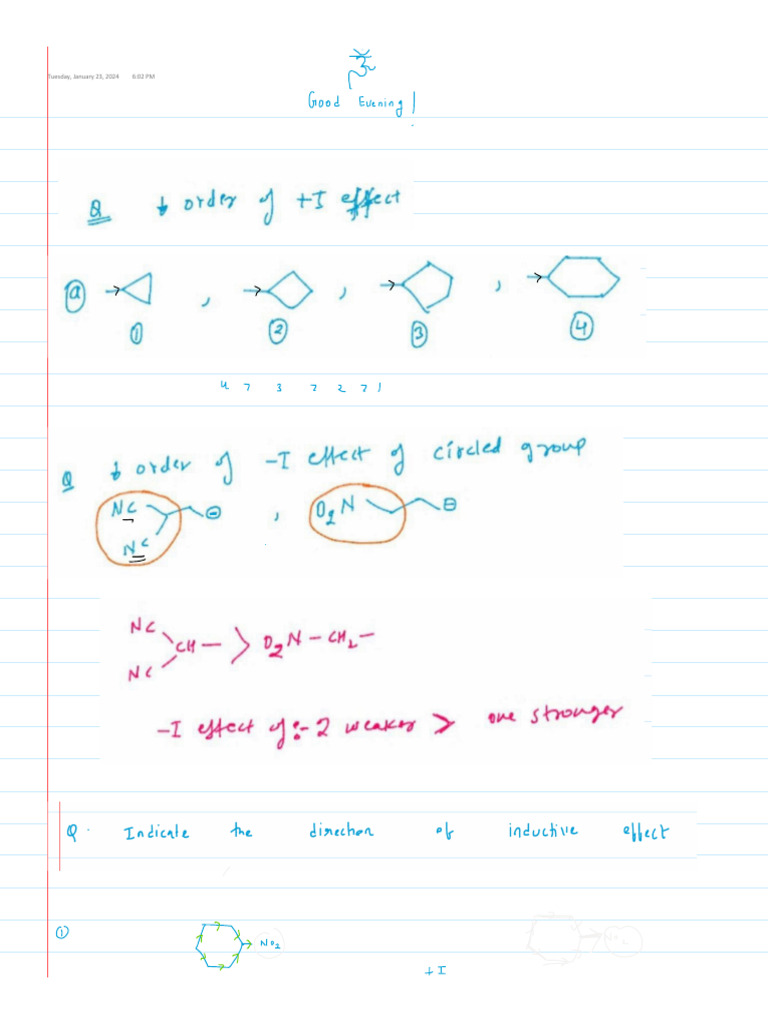 Tuesday, January 23, 2024 6:02 PM
Good Evening!
Q ↓ order of +I effect
(a) , , ,
① ② ③ ④
4 > 3 > 2 > 1
Q ↓ order of -I effect of circled group
NC ⊖ , O2N ⊖
NC
NC
CH— > O2N — CH2 —
NC
-I effect of :- 2 weaker > one stronger
Q. Indicate the direction of inductive effect
① NO2
+I